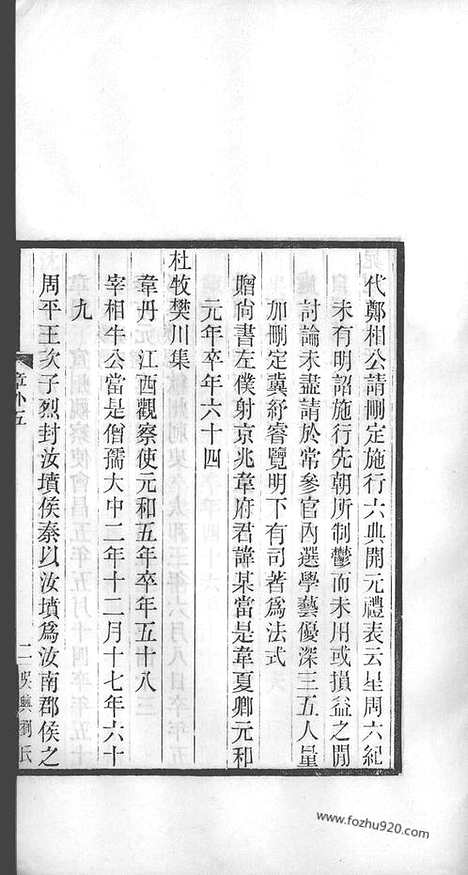 代鄭相公請刪定施行六典開元禮表云星周六紀
未有明詔施行先朝所制鬱而未用或損益之間
討論未盡請於常參官內選學藝優深三五人量
加刪定冀紓睿覽明下有司著為法式
贈尚書左僕射京兆韋府君諱某當是韋夏卿元和
元年卒年六十四
杜牧樊川集
韋丹　江西觀察使元和五年卒年五十八
宰相牛公當是僧孺大中二年十二月十七年六十
九
周平王次子烈封汝墳侯秦以汝墳為汝南郡侯之
章外五
二　吳興劉氏
www.fozhu920.com